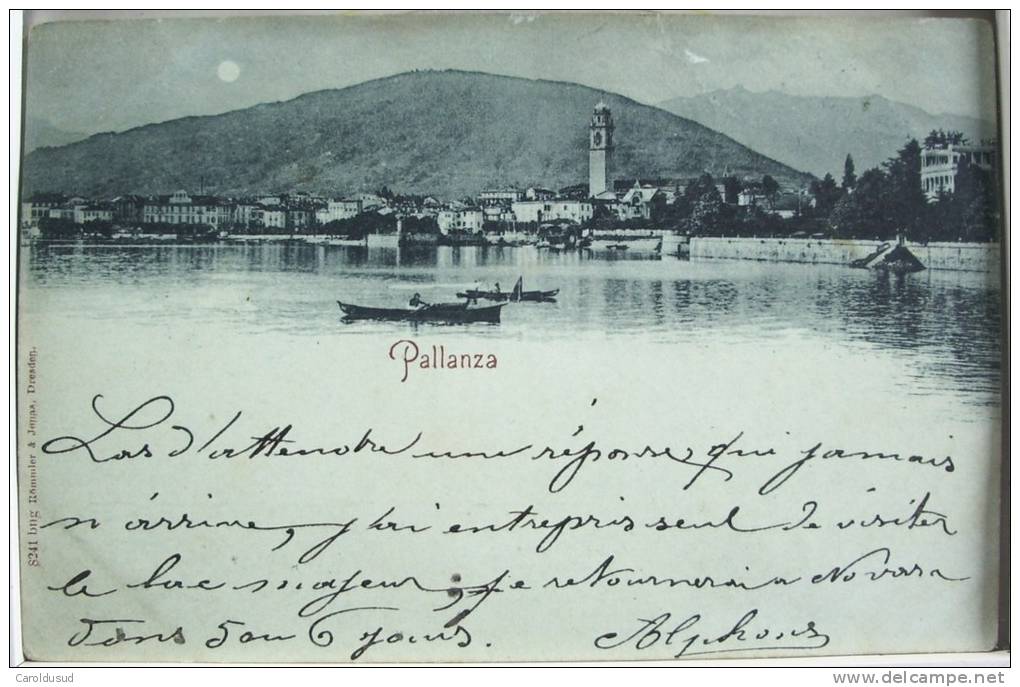 Pallanza
Las d'attendre une réponse, qui jamais
n'arrive, j'ai entrepris seul de visiter
le lac majeur, je retournerai a Novara
dans 5 ou 6 jours. Alphons
8241 lmg Römmler & Jonas, Dresden.
Caroldusud
delcampe.net